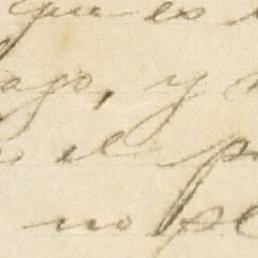 que es
ago, y
el p
no se